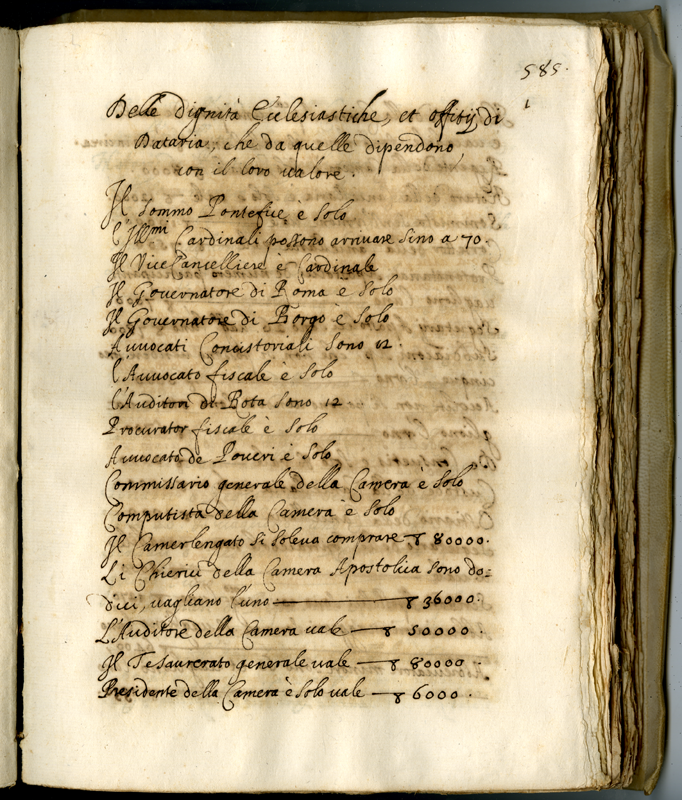 585.
1
Delle dignità Ecclesiastiche, et offitij di
Dataria, che da quelle dipendono,
con il loro valore.
Il Sommo Pontefice è solo
l'Ill.mi Cardinali possono arrivare sino a 70.
Il Vice Cancelliere è Cardinale
Il Governatore di Roma è solo
Il Governatore di Borgo è solo
Avvocati Concistoriali sono 12.
l'Avvocato fiscale è solo
l'Auditori di Rota sono 12
Procurator fiscale è solo
Avvocato de Poveri è solo
Commissario generale della Camera è solo
Computista della Camera è solo
Il Camerlengato si soleva comprare 80000.
Li Chierici della Camera Apostolica sono do=
dici, vagliano l'uno 36000.
L'Auditore della Camera vale 50000.
Il Tesaurerato generale vale 80000.
Presidente della Camera è solo vale 6000.